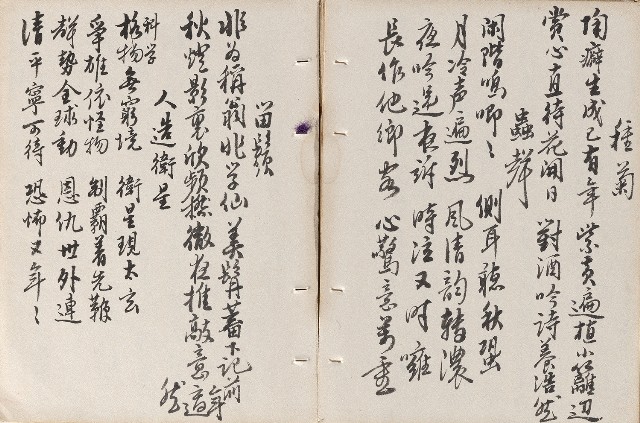 種菊
陶癖生成已有年 紫黃遍植小籬边
賞心直待花開日 對酒吟詩養浩然
蟲聲
閑階鳴唧〻 側耳聴秋蛩
月冷声遍烈 風清韵轉濃
夜吟 時注又时
長作他鄉客 心驚意萬重
留鬚
非为稱翁非学仙 美髯蓄下記前年
秋燈影裏欣頻撚 徹夜推敲意適然
人造衛星
科学
格物無窮境 衛星現太玄
爭雄依怪物 制霸着先鞭
群势全球動 恩仇世外連
清平寧可待 恐怖又年〻